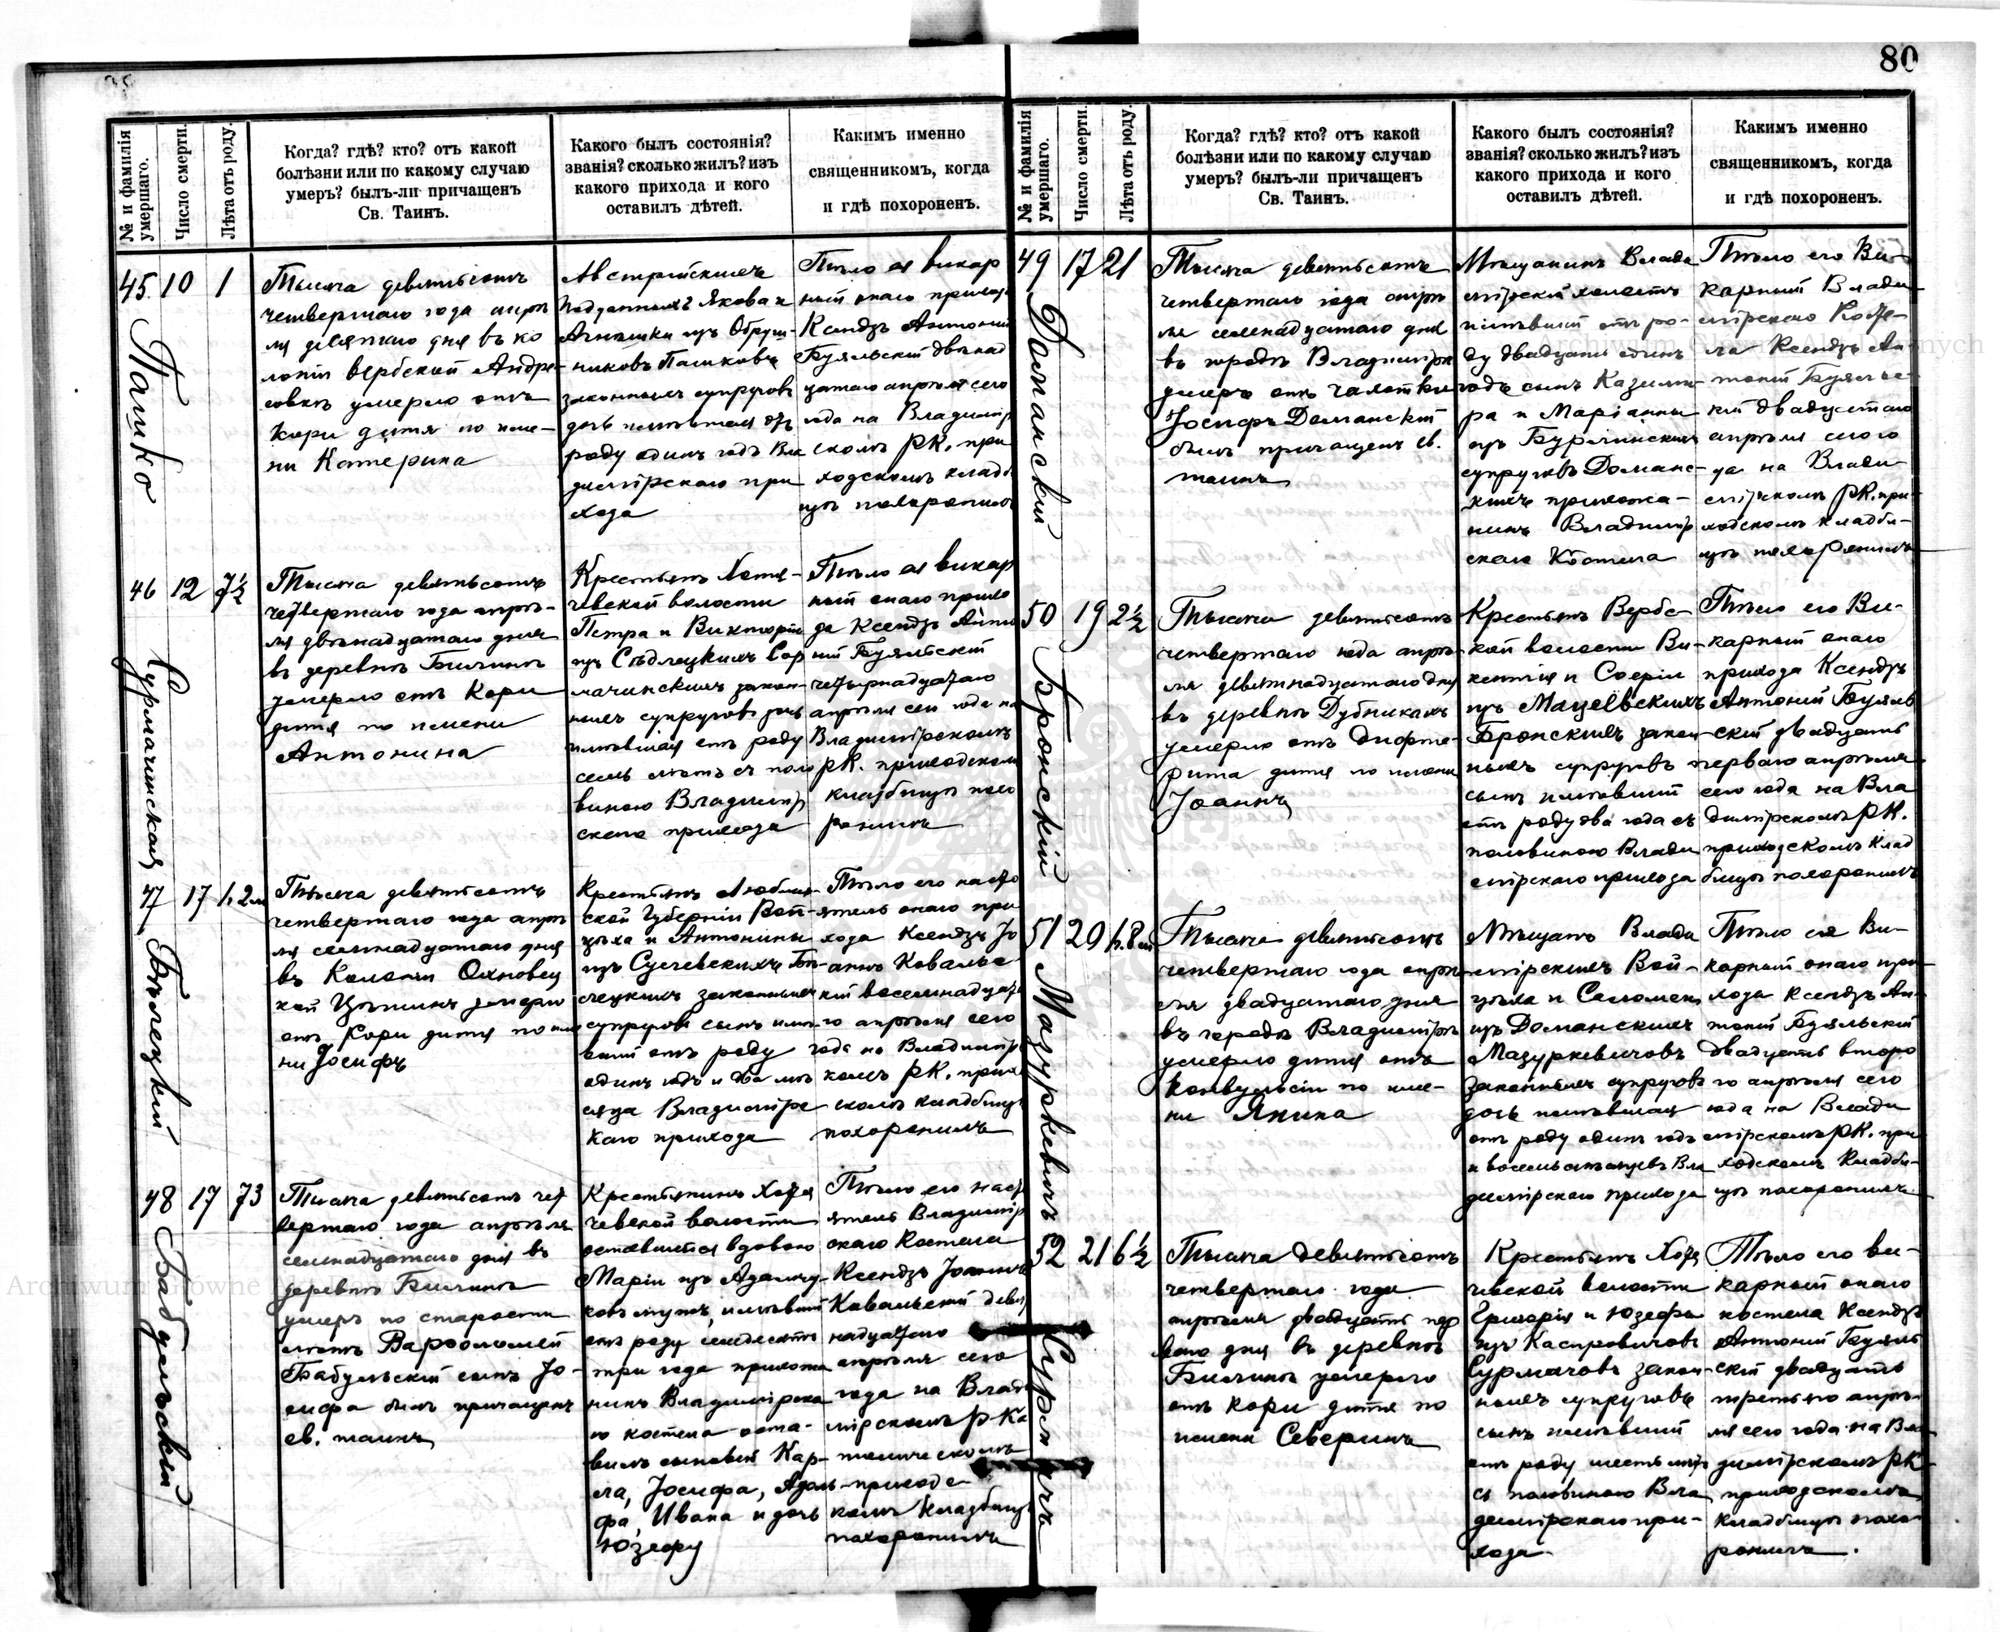 80
№ и фамилія умершаго.
Число смерти.
Лѣта отъ роду.
Когда? гдѣ? кто? отъ какой
болѣзни или по какому случаю
умеръ? былъ-ли причащенъ
Св. Таинъ.
Какого былъ состоянія?
званія? сколько жилъ? изъ
какого прихода и кого
оставилъ дѣтей.
Какимъ именно
священникомъ, когда
и гдѣ похороненъ.
45 10 1
Пашко
Тысяча девятьсотъ
четвертаго года апрѣ
ля десятаго дня въ ко
лоніи Вербской Андре
совкѣ умерло отъ
кори дитя по име-
ни Катерина
Австрійскихъ
подданныхъ Якова и
Агнешки изъ
Пашковъ
законныхъ супруговъ
дочь имѣвшая отъ
роду одинъ годъ Вла
димірскаго при
хода
Тѣло ея викар
ный онаго прихода
Ксендзъ Антоній
Буяльскій двѣнад
цатаго апрѣля сего
года на Владимір
скомъ РК. при
ходскомъ кладби
щѣ похоронилъ
46 12 7½
Сурмачинская
Тысяча девятьсотъ
четвертаго года апрѣ-
ля двѣнадцатаго дня
въ деревнѣ Биличи
умерло отъ кори
дитя по имени
Антонина
Крестьянъ Хотя-
чевской волости
Петра и Викторіи
изъ Сѣдлецкихъ Сур
мачинскихъ закон-
ныхъ супруговъ дочь
имѣвшая отъ роду
семь лѣтъ съ поло
виною Владимір
скаго прихода
Тѣло ея викар
ный онаго прихо
да Ксендзъ Анто
ній Буяльскій
четырнадцатаго
апрѣля сего года на
Владимірскомъ
РК. приходскомъ
кладбищѣ похо
ронилъ
47 17 1г. 2м
Бѣлецкій
Тысяча девятьсотъ
четвертаго года апрѣ
ля семнадцатаго дня
въ Колоніи Охновец
кой умерло
отъ Кори дитя по име
ни Іосифъ
Крестьянъ Люблин-
ской Губерніи Вой-
цѣха и Антонины
изъ Сущевскихъ Бѣ-
лецкихъ законныхъ
супруговъ сынъ имѣ-
вшій отъ роду
одинъ годъ и два мѣ
сяца Владимірс
каго прихода
Тѣло его насто
ятель онаго при
хода Ксендзъ Іо
аннъ Ковальс
кій восемнадцата
го апрѣля сего
года на Владимір
комъ РК. приход
скомъ кладбищѣ
похоронилъ
48 17 73
Бабульскій
Тысяча девятьсотъ чет
вертаго года апрѣля
семнадцатаго дня въ
деревнѣ Биличи
умеръ по старости
лѣтъ Варфоломей
Бабульскій сынъ Іо-
сифа былъ причащенъ
св. таинъ
Крестьянинъ Хотя
чевской волости
оставшейся вдовою
Маріи изъ Адамчу-
ковъ мужъ, имѣвшій
отъ роду семдесятъ
три года прихожа
нинъ Владимірска
го костела оста-
вилъ сыновей Кар-
ла, Іосифа, Адоль-
фа, Ивана и дочь
Юзефу
Тѣло его насто
ятель Владимір
скаго Костела
Ксендзъ Іоаннъ
Ковальскій девят
надцатаго
апрѣля сего
года на Влади
мірскомъ РКа
толическомъ
приходс
комъ кладбищѣ
похоронилъ
49 17 21
Доманскій
Тысяча девятьсотъ
четвертаго года апрѣ
ля семнадцатаго дня
въ городѣ Владимірѣ
умеръ отъ чахотки
Іосифъ Доманскій
былъ причащенъ св.
таинъ
Мѣщанинъ Влади
мірскій холостъ
имѣвшій отъ ро-
ду двадцать одинъ
годъ сынъ Казими
ра и Маріанны
изъ Бурлинскихъ
супруговъ Доманс-
кихъ прихожа-
нинъ Владимір
скаго Костела
Тѣло его Ви-
карный Влади
мірскаго Косте-
ла Ксендзъ Ан
тоній Буяльс-
кій двадцатаго
апрѣля сего го
да на Влади
мірскомъ РК. при-
ходскомъ кладби-
щѣ похоронилъ
50 19 2½
Бронскій
Тысяча девятьсотъ
четвертаго года апрѣ-
ля девятнадцатаго дня
въ деревнѣ Дубникахъ
умерло отъ дифте-
рита дитя по имени
Іоаннъ
Крестьянъ Вербс-
кой волости Ви-
кентія и Софіи
изъ Мацеёвскихъ
Бронскихъ закон
ныхъ супруговъ
сынъ имѣвшій
отъ роду два года съ
половиною Влади
мірскаго прихода
Тѣло его Ви-
карный онаго
прихода Ксендзъ
Антоній Буяль
скій двадцать
перваго апрѣля
сего года на Вла
димірскомъ РК.
приходскомъ клад
бищѣ похоронилъ
51 20 1г. 8м
Мазуркевичъ
Тысяча девятьсотъ
четвертаго года апрѣ
ля двадцатаго дня
въ городѣ Владимірѣ
умерло дитя отъ
конвульсіи по име-
ни Янина
Мѣщанъ Влади
мірскихъ Вой-
цѣха и Саломеи
изъ Доманскихъ
Мазуркевичовъ
законныхъ супруговъ
дочь имѣвшая
отъ роду одинъ годъ
и восемь мѣсяцевъ Вла
димірскаго прихода
Тѣло ея Ви-
карный онаго при
хода Ксендзъ Ан-
тоній Буяльскій
двадцать второ
го апрѣля сего
года на Влади
мірскомъ РК. при
ходскомъ кладби-
щѣ похоронилъ
52 21 6½
Сурмачъ
Тысяча девятьсотъ
четвертаго года
апрѣля двадцать пер
ваго дня въ деревнѣ
Биличи умерло
отъ кори дитя по
имени Северинъ
Крестьянъ Хотя
чевской волости
Григорія и Юзефы
изъ Каспровичовъ
Сурмачовъ закон
ныхъ супруговъ
сынъ имѣвшій
отъ роду шесть лѣтъ
съ половиною Вла
димірскаго при-
хода
Тѣло его ви-
карный онаго
костела Ксендзъ
Антоній Буяль
скій двадцать
третьяго апрѣ-
ля сего года на Вла
димірскомъ РК
приходскомъ
кладбищѣ похо
ронилъ.
Archiwum Główne Akt Dawnych
Archiwum Główne Akt Dawnych